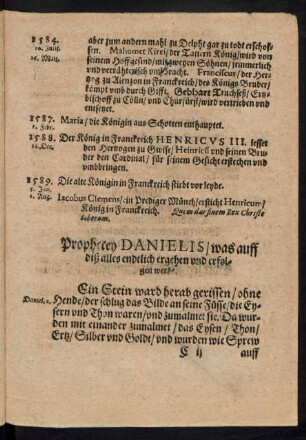 1584. aber zum andern mahl zu Delpht gar zu todt erschos-
10. Julij. sen. Mahomet Kirei/der Tattern König/wird von
25. Maij. seinem Hoffgesind/mit zweyen Söhnen/jemmerlich
und verrähterisch umbbracht. Franciscus/der Her-
tzog zu Alenzon in Franckreich/des Königs Bruder/
kömpt umb durch Gifft. Gebhart Truchseß/Ertz-
bischoff zu Cölln/und Churfürst/wird vertrieben und
entsetzet.
1587. Maria/die Königin aus Schotten enthauptet.
1588. Der König in Franckreich HENRICVS III. lesset
den Hertzogen zu Gwise/Heinrich und seinen Bru-
der den Cardinal/für seinem Gesicht erstechen und
umbbringen.
1589. Die alte Königin in Franckreich stirbt vor leyde.
5. Jan.
1. Aug. Jacobus Clemens/ein Prediger Münch/ersticht Henricum/
König in Franckreich.
Prophecey DANIELIS/was auff
diß alles endlich ergehen und erfol-
gen werde.
Ein Stein ward herab gerissen/ohne
Daniel.2. Hende/der schlug das Bilde an seine Füsse/die Ey-
sern und Thon waren/und zumalmet sie. Da wur-
den mit einander zumalmet/das Eysen/Thon/
Ertz/Silber und Goldt/und wurden wie Sprew
C ij auff